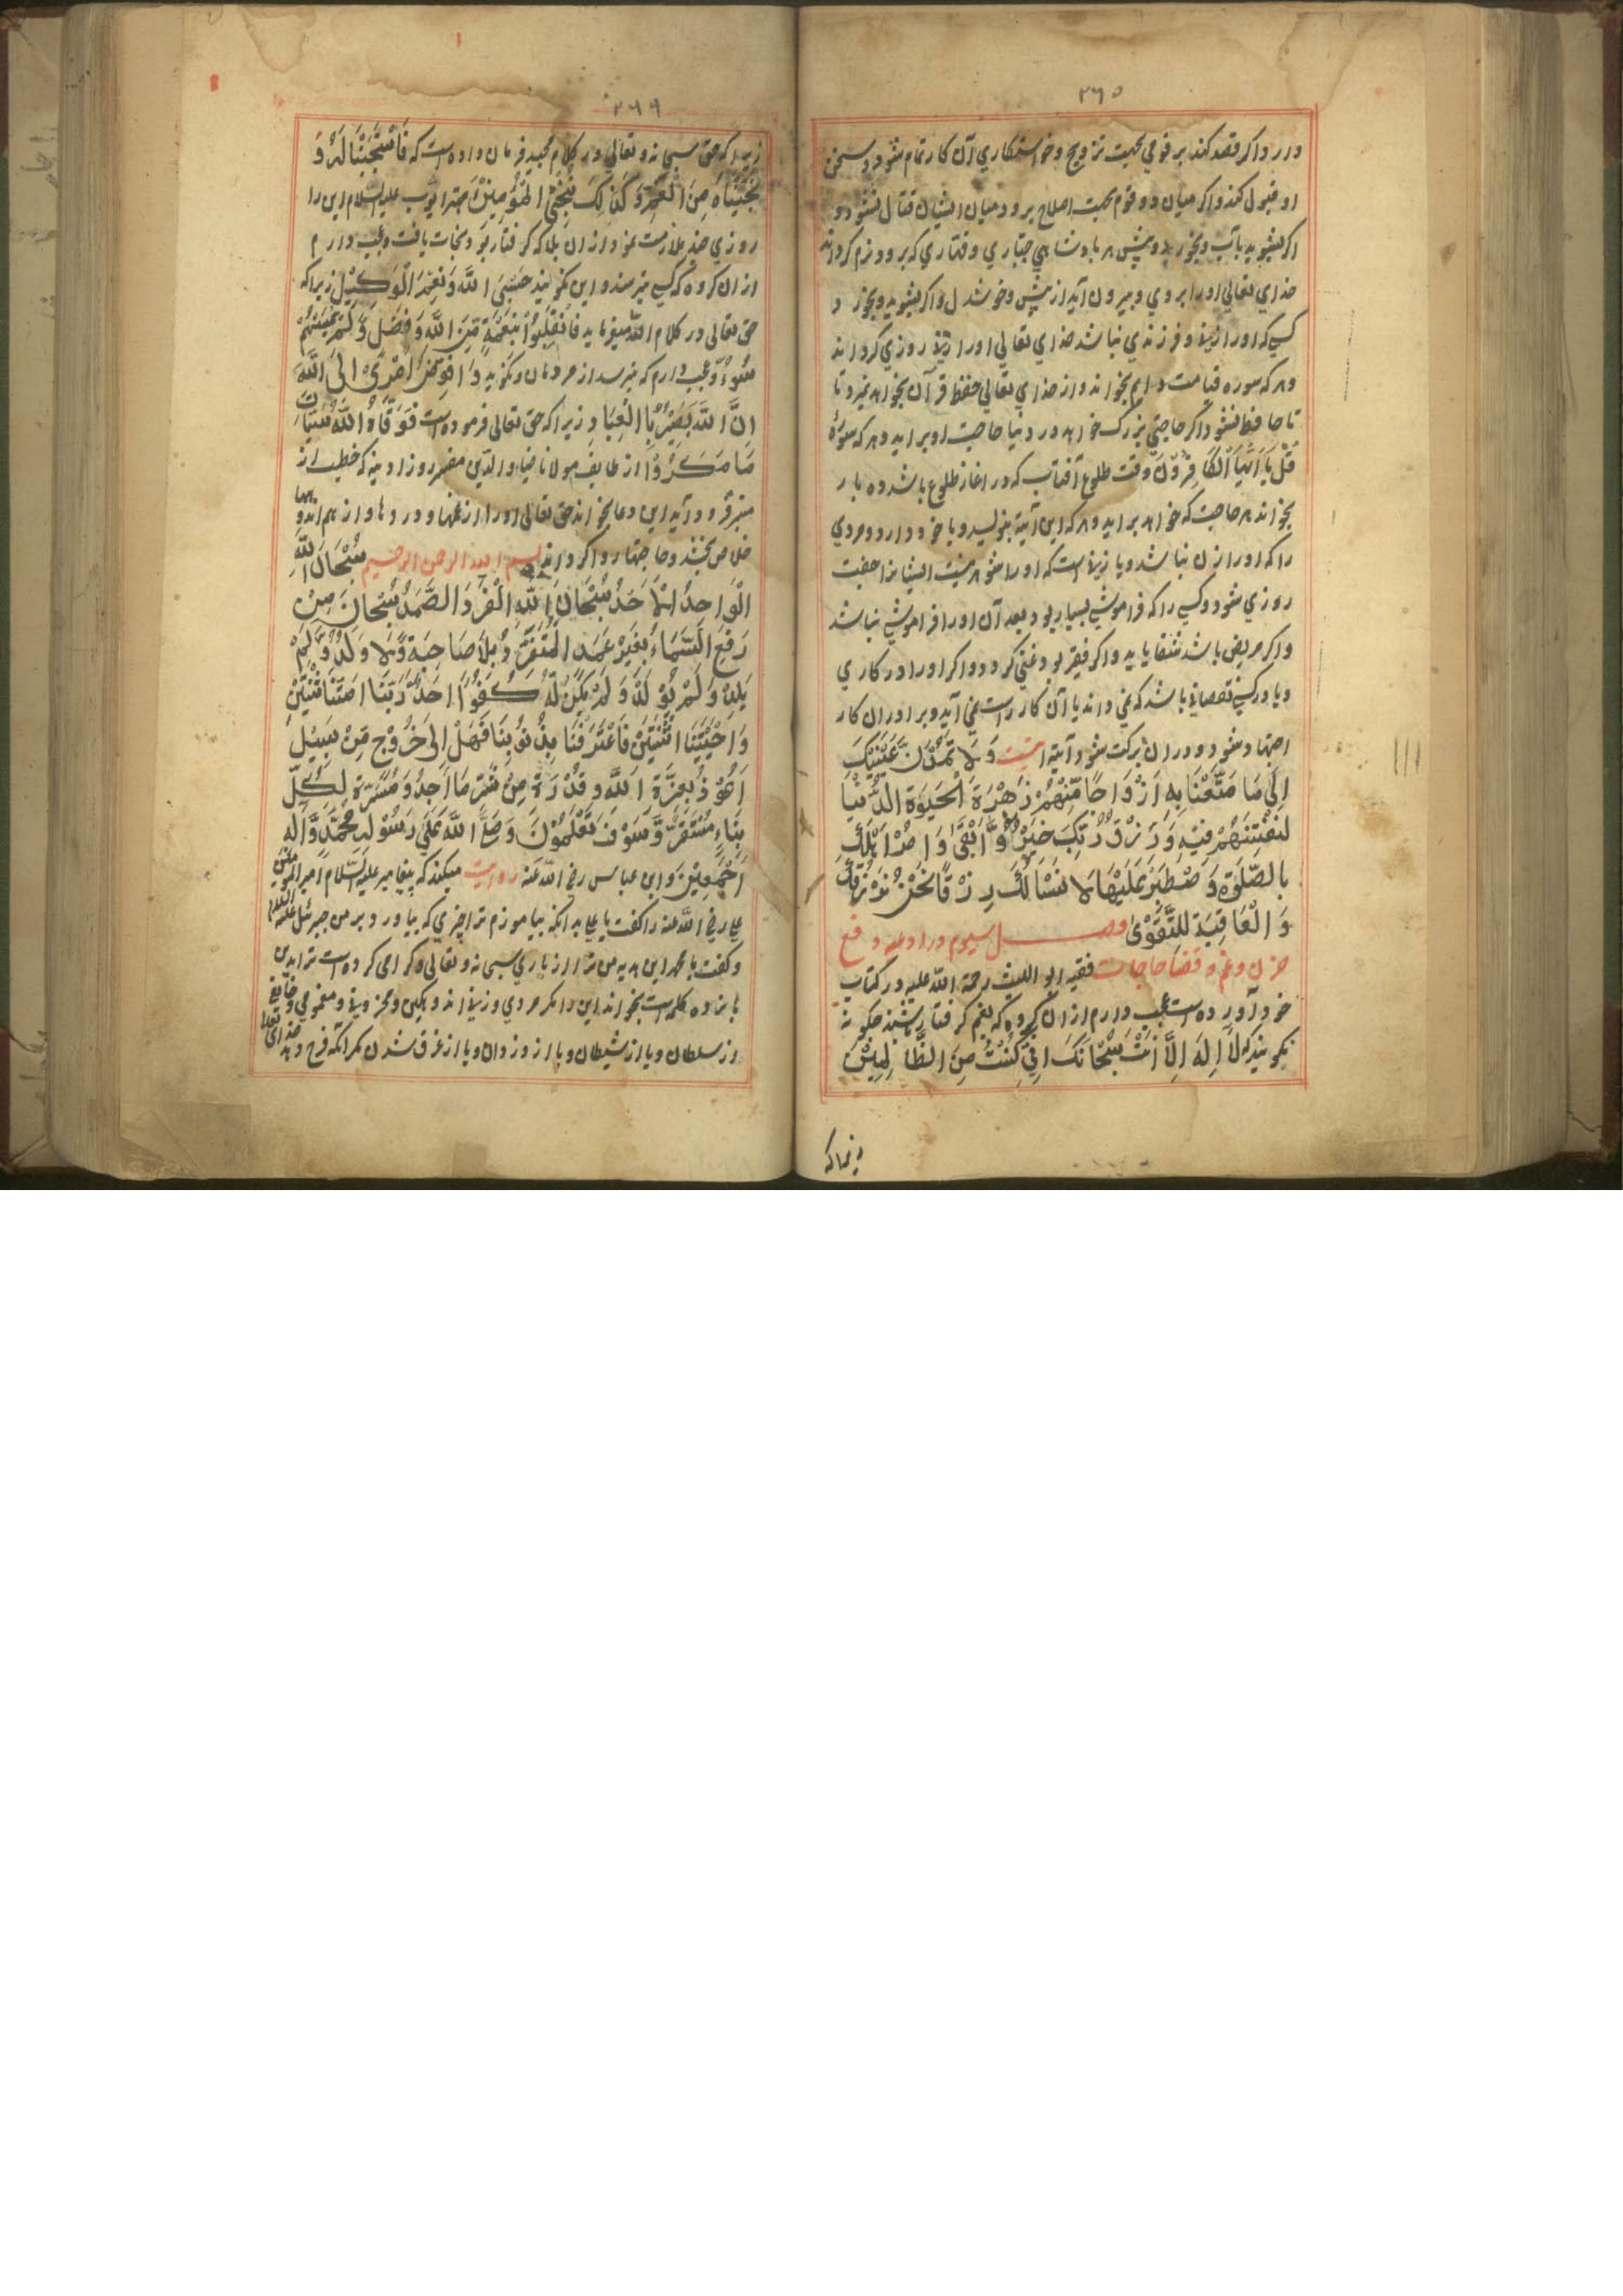 ٢٦٥
دارد واکر قصد کند بر قومی بجهت تزویج و خواستکاری آن کار تمام شود و سخن
او قبول کنند واکر میان دو قوم بجهت اصلاح برود میان ایشان قتال نشود و
اکر بشوید بآب و بخورد و پیش هر بادشاهی جباری و قتاری که برود نرم کرداند
خدای تعالی اورا بروی و بیرون آید از پیش وخوشدل واکر بشوید و بخورد
کسی که اورا زن و فرزندی نباشد خدای تعالی اورا زن روزی کرداند
وهر که سوره قیامت دایم بخواند و از خدای تعالی حفظ قرآن بخواهد نمیرد تا
تا حافظ نشود اکر حاجتی بزرک خواهد در دنیا حاجت او براید وهر که سورة
قُلْ یَا اَیُّهَا الْکَافِرُوْنَ وقت طلوع آفتاب که در اغاز طلوع باشد ده بار
بخواند هر حاجت که خواهد براید وهر که این آیة بنویسد و با خود دارد و مردی
را که اورا زن نباشد ویا زن است که اورا شوهر نیست ایشانرا جفت
روزی شود و کسی را که فراموشی بسیار بود بعد آن اورا فراموشی نباشد
واکر مریض باشد شفا یابد واکر فقیر بود غنی کردد واکر اورا در کاری
ویا در کسبی نقصان باشد که نمی داند یا آن کار راست نمی آید و برادران کار
اجتهاد شود و دران برکت شود آیة اینست وَ لَا تَمُدَّنَّ عَیْنَیْکَ
اِلٰی مَا مَتَّعْنَا بِهِ اَزْوَاجًا مِّنْهُمْ زَهْرَةَ الْحَیٰوةِ الدُّنْیَا
لِنَفْتِنَهُمْ فِیْهِ وَ رِزْقُ رَبِّکَ خَیْرٌ وَّ اَبْقٰی وَ اْمُرْ اَهْلَکَ
بِالصَّلٰوةِ وَ صْطَبِرْ عَلَیْهَا لَا نَسْاَلُکَ رِزْقًا نَحْنُ نَرْزُقُکَ
وَ الْعَاقِبَةُ لِلتَّقْوٰی فصل سیوم در ادعیه دفع
حزن و غم و قضا حاجات فقیه ابو اللیث رحمة اللّه علیه در کتاب
خود آورده است عجب دارم از ان کروه که بغم کرفتار شدند چکونه
نکویند که لَا اِلٰهَ اِلَّا اَنْتَ سُبْحَانَکَ اِنِّی کُنْتُ مِنَ الظَّالِمِیْنَ
زیراکه
٢٦٦
زیراکه حق سبحانه و تعالی در کلام مجید فرمان داده است که فَاسْتَجَبْنَا لَهُ وَ
نَجَّیْنَاهُ مِنَ الْغَمِّ وَ کَذٰلِکَ نُنْجِی الْمُؤْمِنِیْنَ مهتر ایوب علیه السّلام این را
روزی چند ملازمت نمود از ان بلا که کرفتار بود نجات یافت و عجب دارم
ازان کروه که کسی میترسند و این نکویند حَسْبِیَ اللّٰهُ وَ نِعْمَ الْوَکِیْل زیراکه
حق تعالی در کلام اللّه میفرماید فَانْقَلَبُوْا بِنِعْمَةٍ مِّنَ اللّٰهِ وَ فَضْلٍ لَّمْ یَمْسَسْهُمْ
سُوْءٌ و عجب دارم که میرسد از مردمان و نکوید وَ اُفَوِّضُ اَمْرِیْ اِلَی اللّٰهِ
اِنَّ اللّٰهَ بَصِیْرٌ بِالْعِبَادِ زیراکه حق تعالی فرموده است فَوَقَاهُ اللّٰهُ سَیِّئَاتِ
مَا مَکَرُوْا از طایف مولانا ضیاء والدّین مفسر روز ادینه که خطیب از
منبر فرود آید این دعا بخواند حق تعالی اورا از غمها و دردها و از هم اندوهها
خلاص بخشد و حاجتها روا کرداند بسم اللّه الرحمن الرحیم سُبْحَانَ اللّٰهِ
الْوَاحِدُ الْاَحَدُ سُبْحَانَ اللّٰهِ الْفَرْدَ الصَّمَدُ سُبْحَانَ مَنْ
رَفَعَ السَّمَاءَ بِغَیْرِ عَمَدٍ الْمُتَفَرِّدُ بِلَا صَاحِبَةٍ وَّلَا وَلَدٌ وَّ لَمْ
یَلِدْ وَ لَمْ یُوْلَدْ وَ لَمْ یَکُنْ لَّهُ کُفُوًا اَحَدٌ رَبَّنَا اَمَتَّنَا اثْنَتَیْنِ
وَ اَحْیَیْتَنَا اثْنَتَیْنِ فَاعْتَرَفْنَا بِذُنُوْبِنَا فَهَلْ اِلٰی خُرُوْجٍ مِّنْ سَبِیْلٍ
اَعُوْذُ بِعِزَّةِ اللّٰهِ وَ قُدْرَةٍ مِنْ شَرِّ مَا اَجِدُ وَ لِکُلِّ
نَبَاءٍ مُّسْتَقَرٌّ وَّ سَوْفَ تَعْلَمُوْنَ وَ صَلَّی اللّٰهُ عَلٰی رَسُوْلِهِ مُحَمَّدٍ وَّ آلِهِ
اَجْمَعِیْنَ و ابن عباس رضی اللّه عنه روایت میکند که پیغامبر علیه السّلام امیر المؤمنین
علی رضی اللّه عنه را کفت یا علی بدانکه بیاموزم ترا چیزی که بیاورد بر من جبرئیل علیه السلام
و کفت یا محمد این هدیه من ترا از باری سبحانه و تعالی و کرامی کرده است ترا بدین
پانزده کلمه است بخواند این را مکر مردی و زن اندوهکین و محزون و مغمومی و خایفی
از سلطان و یا از شیطان و یا از دزدان و یا از غرق شدن مکر آنکه فرج دهد خدای تعالی